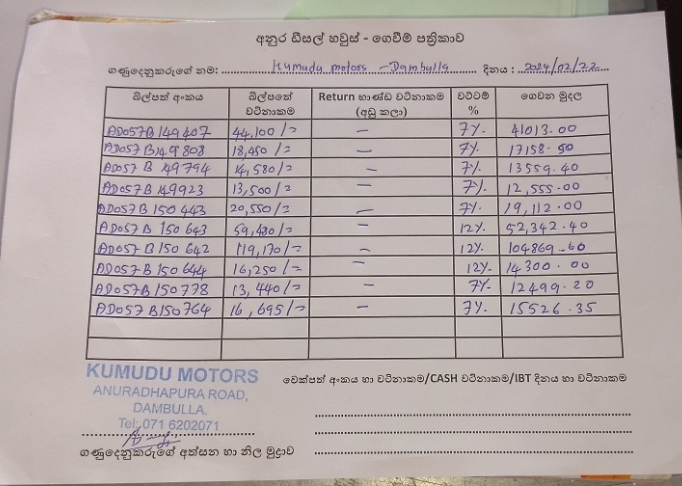 අනුර ඩීසල් හවුස් - ගෙවීම් පත්‍රිකාව
ගණුදෙනුකරුගේ නම: Kumudu motors - Dambulla දිනය : 2024/02/22
බිල්පත් අංකය බිල්පතේ වටිනාකම Return භාණ්ඩ වටිනාකම (අඩු කලා) වට්ටම් % ගෙවන මුදල
AD057B149407 44,100/= — 7% 41013.00
AD057B149808 18,450/= — 7% 17158.50
AD057B149794 14,580/= — 7% 13559.40
AD057B149923 13,500/= — 7% 12,555.00
AD057B150443 20,550/= — 7% 19,112.00
AD057B150643 59,480/= — 12% 52,342.40
AD057B150642 119,170/= — 12% 104869.60
AD057B150644 16,250/= — 12% 14300.00
AD057B150778 13,440/= — 7% 12499.20
AD057B150764 16,695/= — 7% 15526.35
KUMUDU MOTORS
ANURADHAPURA ROAD,
DAMBULLA.
Tel: 071 6202071
චෙක්පත් අංකය හා වටිනාකම/CASH වටිනාකම/IBT දිනය හා වටිනාකම
ගණුදෙනුකරුගේ අත්සන හා නිල මුද්‍රාව